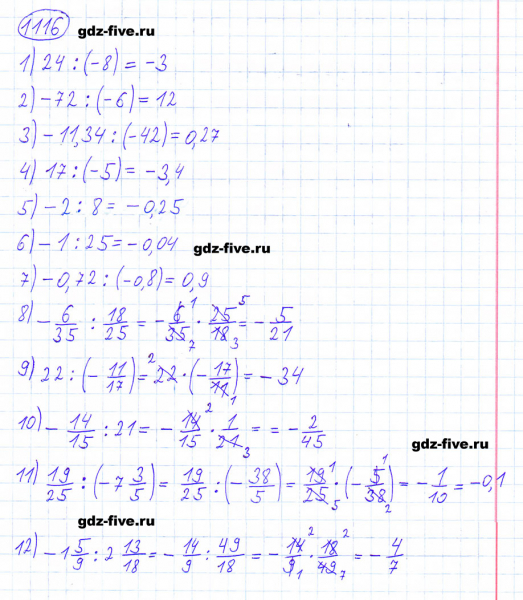 1116 gdz-five.ru
1) 24 : (-8) = -3
2) -72 : (-6) = 12
3) -11,34 : (-42) = 0,27
4) 17 : (-5) = -3,4
5) -2 : 8 = -0,25
6) -1 : 25 = -0,04 gdz-five.ru
7) -0,72 : (-0,8) = 0,9
8) -6/35 : 18/25 = -6/35 1 7 · 25/18 5 3 = -5/21
9) 22 : (-11/17) = 2 22 · (-17/11 1) = -34
10) -14/15 : 21 = -14/15 2 · 1/21 3 = = -2/45
gdz-five.ru
11) 19/25 : (-7 3/5) = 19/25 : (-38/5) = 19/25 1 5 · (-5/38 1 2) = -1/10 = -0,1
gdz-five.ru
12) -1 5/9 : 2 13/18 = -14/9 : 49/18 = -14/9 2 1 · 18/49 2 7 = -4/7